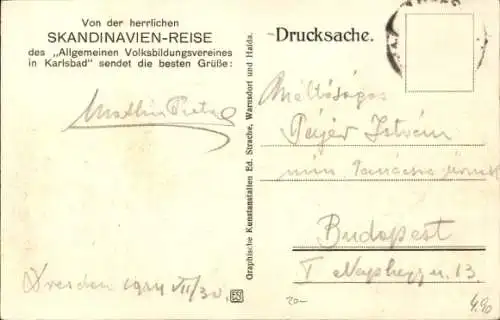 Von der herrlichen
SKANDINAVIEN-REISE
des „Allgemeinen Volksbildungsvereines
in Karlsbad" sendet die besten Grüße:
Dresden 1924 VII/30.
Graphische Kunstanstalten Ed. Strache, Warnsdorf und Haida.
Drucksache.
Méltóságos
István
min. tanácsos úrnak
Budapest
I 13
20-
4.90